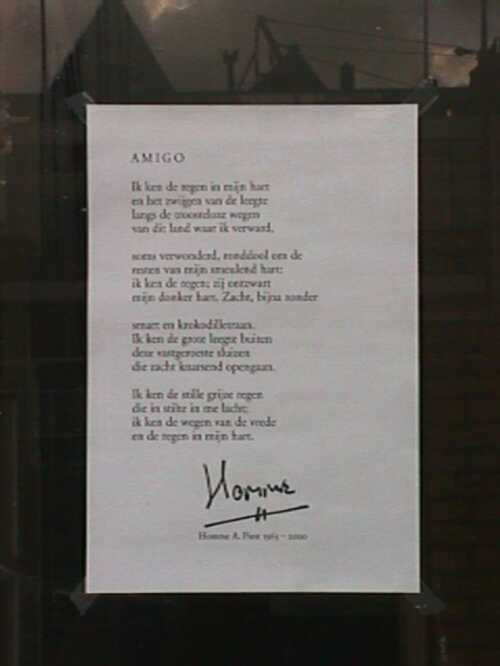 AMIGO
Ik ken de regen in mijn hart
en het zwijgen van de leegte
langs de troosteloze wegen
van dit land waar ik verward,
soms verwonderd, ronddool om de
resten van mijn smeulend hart:
ik ken de regen; zij ontzwart
mijn donker hart. Zacht, bijna zonder
smart en krokodilletraan.
Ik ken de grote leegte buiten
deze vastgeroeste sluizen
die zacht knarsend opengaan.
Ik ken de stille grijze regen
die in stilte in me lacht;
ik ken de wegen van de vrede
en de regen in mijn hart.
Homme
Homme A. Piest 1963 – 2000